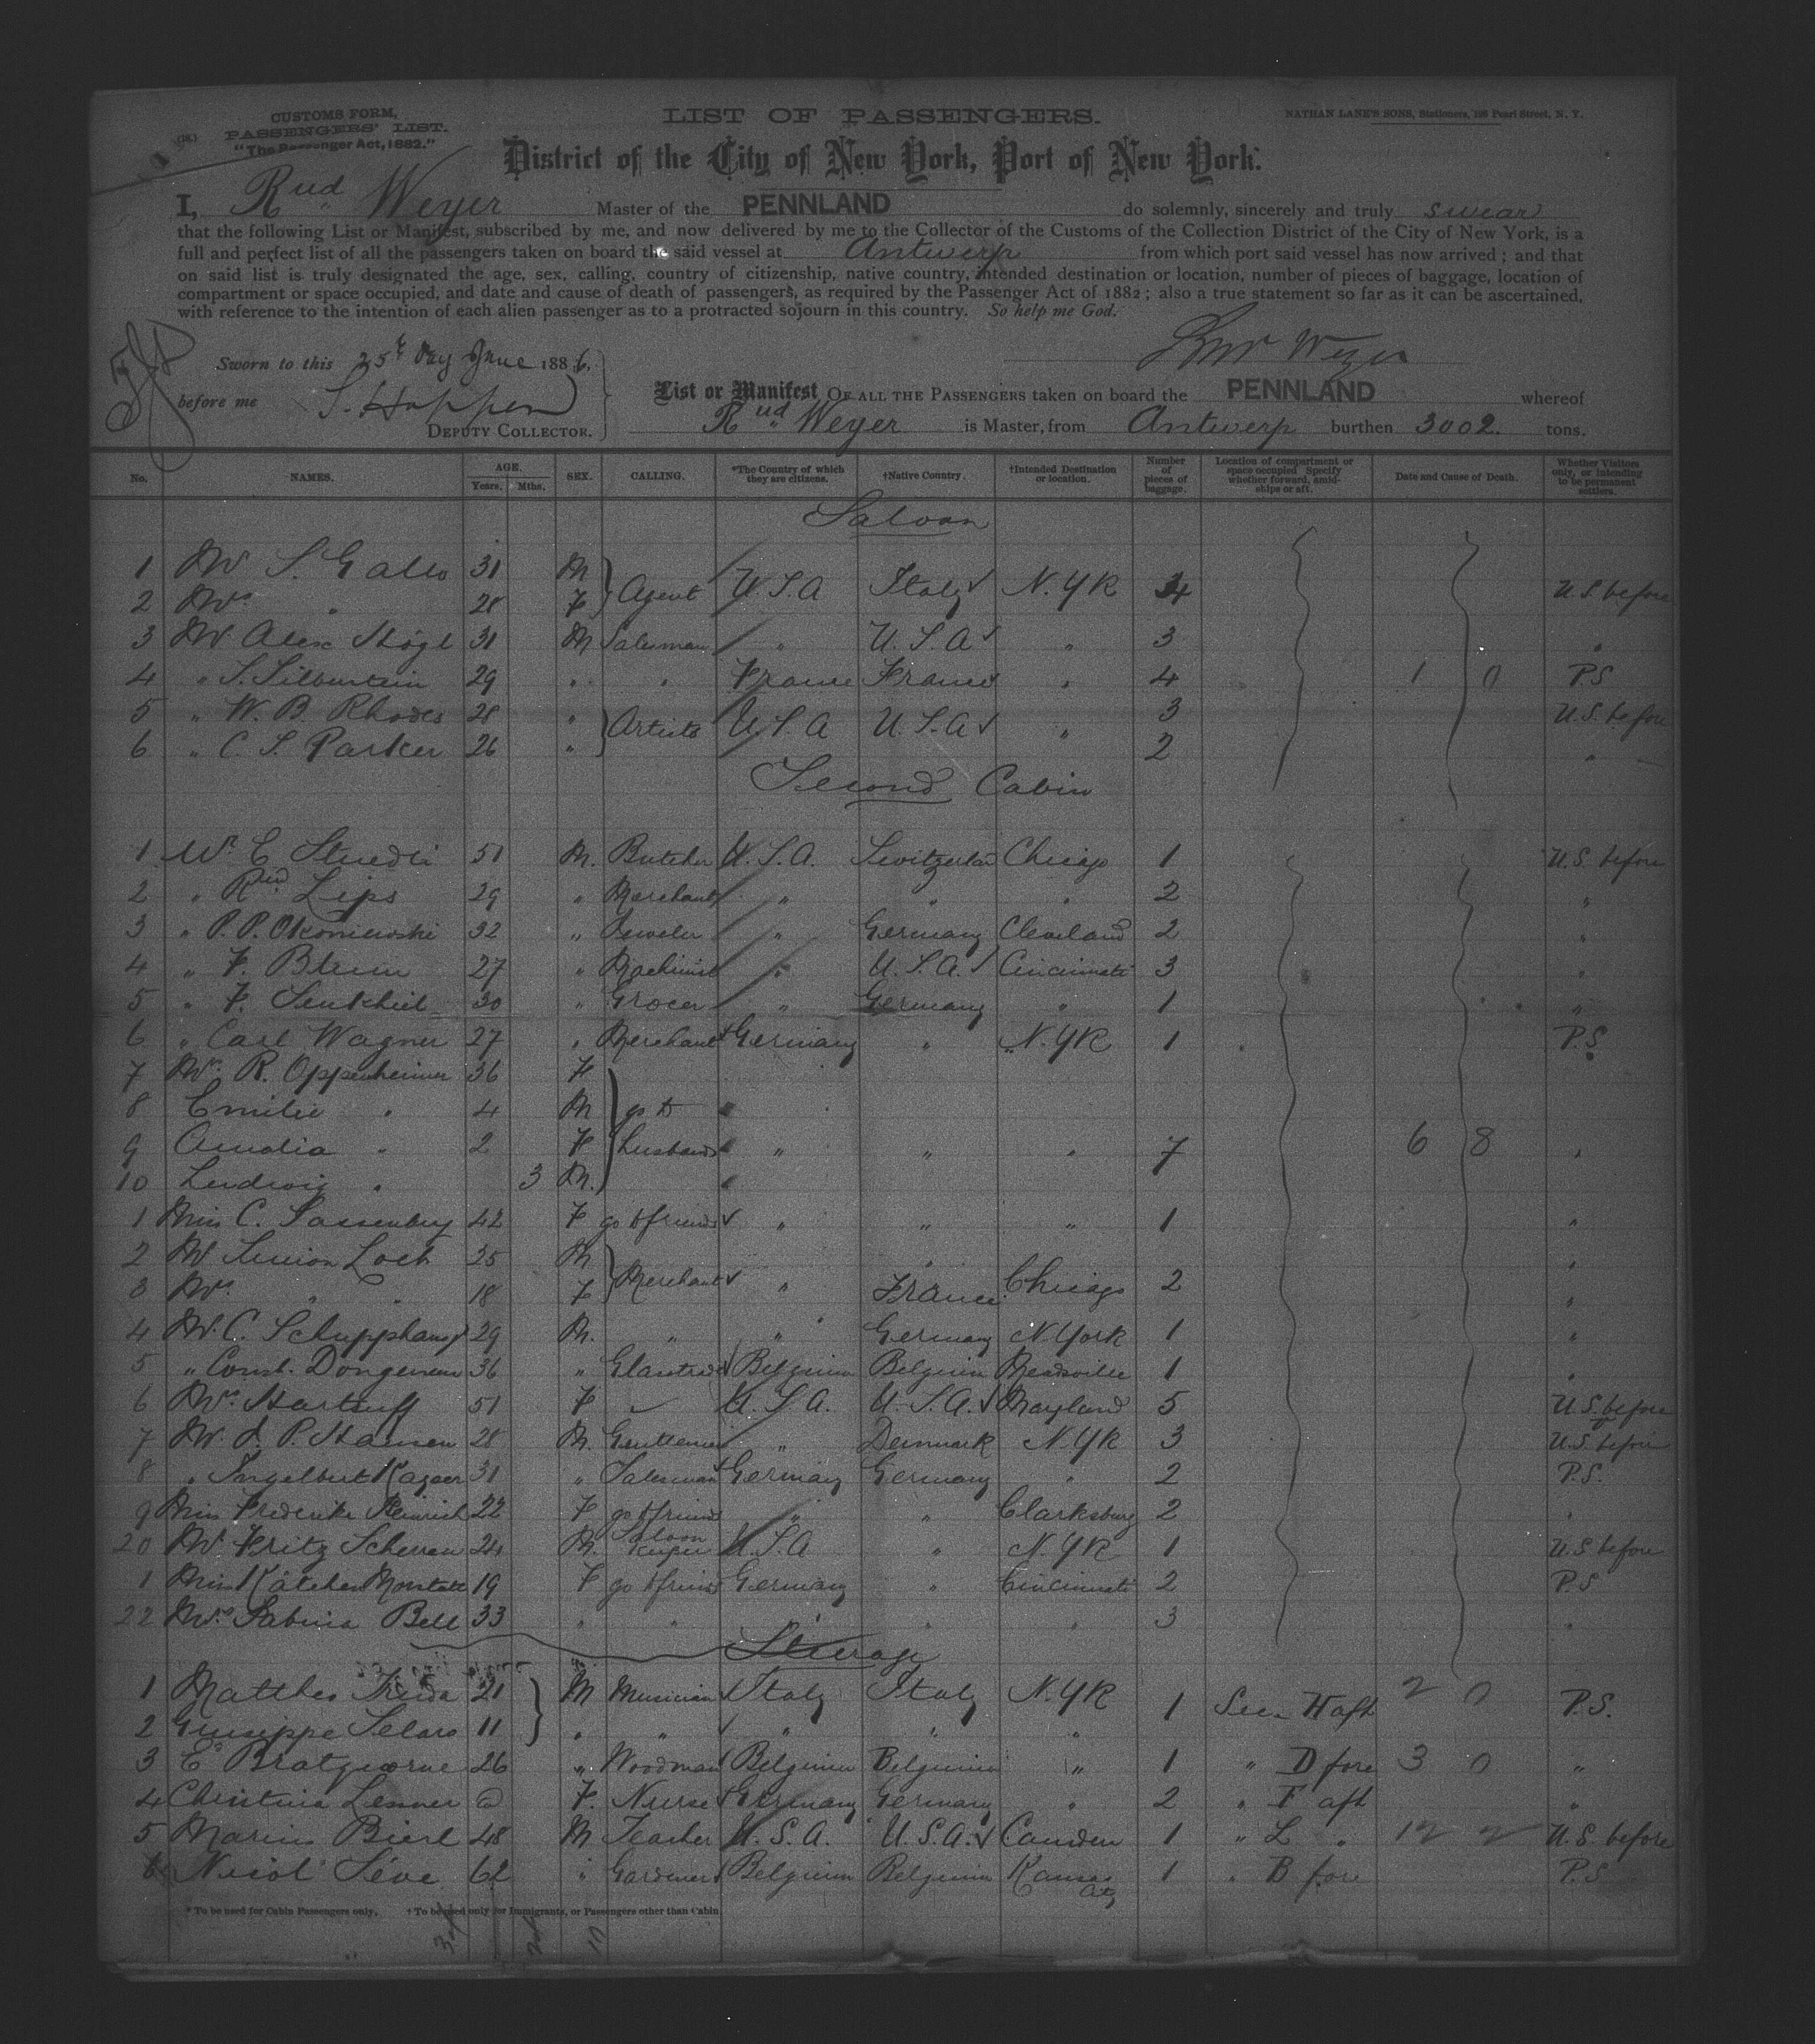 CUSTOMS FORM,
PASSENGERS' LIST.
"The Passenger Act, 1882."
LIST OF PASSENGERS.
NATHAN LANE'S SONS, Stationers, 128 Pearl Street, N. Y.
District of the City of New York, Port of New York.
I, Rud Weyer Master of the PENNLAND do solemnly, sincerely and truly swear
that the following List or Manifest, subscribed by me, and now delivered by me to the Collector of the Customs of the Collection District of the City of New York, is a
full and perfect list of all the passengers taken on board the said vessel at Antwerp from which port said vessel has now arrived; and that
on said list is truly designated the age, sex, calling, country of citizenship, native country, intended destination or location, number of pieces of baggage, location of
compartment or space occupied, and date and cause of death of passengers, as required by the Passenger Act of 1882; also a true statement so far as it can be ascertained,
with reference to the intention of each alien passenger as to a protracted sojourn in this country. So help me God.
Rud Weyer
Sworn to this 25th Day June 1886,
before me S. Hoppen
DEPUTY COLLECTOR.
List or Manifest OF ALL THE PASSENGERS taken on board the PENNLAND whereof
Rud Weyer is Master, from Antwerp burthen 3002. tons.
No. NAMES. AGE. Years. Mths. SEX. CALLING. *The Country of which they are citizens. †Native Country. †Intended Destination or location. Number of pieces of baggage. Location of compartment or space occupied Specify whether forward, amidships or aft. Date and Cause of Death. Whether Visitors only, or intending to be permanent settlers.
Saloon
1 Mr S. Gallo 31 M Agent U.S.A Italy N.YK 4 U.S. before
2 Mrs " 28 F
3 Mr Alex 31 M Salesman " U.S.A " 3 "
4 " S. Silberstein 29 " " France France " 4 1 0 P.S
5 " W. B. Rhodes 28 " Artists U.S.A U.S.A " 3 U.S. before
6 " C. S. Parker 26 " 2 "
Second Cabin
1 Mr E 51 M. Butcher U.S.A. Switzerland Chicago 1 U.S. before
2 " Rud Lips 29 " Merchant " " " 2 "
3 " P. P. Okoniewski 32 " Jeweler " Germany Cleveland 2 "
4 " F. 27 " Machinist " U.S.A. Cincinnati 3 "
5 " F. 30 " Grocer " Germany " 1 "
6 " Carl Wagner 27 " Merchant Germany " N.YK 1 P.S
7 Mrs R. Oppenheimer 36 F
8 Emilie " 4 M go to
9 Amalia " 2 F husband " " " 7 6 8 "
10 Ludwig " 3 M.
1 Miss C. 42 F go to friends " " " 1 "
2 Mr Simon Loeb 25 M "
3 Mrs " " 18 F Merchant " France Chicago 2 "
4 Mr. C. 29 M. " " Germany N. York 1 "
5 " Const. 36 " Belgium Belgium Meadville 1 "
6 Mrs Hartsuff 51 F U.S.A. U.S.A. Maryland 5 U.S. before
7 Mr. J. P. Hansen 28 M. Gentleman " Denmark N.YK 3 U.S. before
8 " Ingelbert 31 " Salesman Germany Germany " 2 P.S.
9 Miss Frederike Heinrich 22 F go to friends " " Clarksburg 2 "
20 Mr Fritz 24 M. Saloon Keeper U.S.A " N.YK 1 U.S before
1 Miss Kätchen 19 F go to friends Germany " Cincinnati 2 P.S
22 Mrs Sabina Bell 33 " " " " " 3 "
Steerage
1 Matthes 21 M Musician Italy Italy N.YK 1 Sec. H aft 2 0 P.S.
2 Giuseppe 11 " " " " "
3 26 " Woodman Belgium Belgium " 1 " D fore 3 0 "
4 Christina F. Nurse Germany Germany " 2 " F aft "
5 Bierl 48 M Teacher U.S.A. U.S.A. Camden 1 " L " 12 2 U.S. before
6 62 " Gardener Belgium Belgium Kansas City 1 " B fore P.S
* To be used for Cabin Passengers only. † To be used only for Immigrants, or Passengers other than Cabin